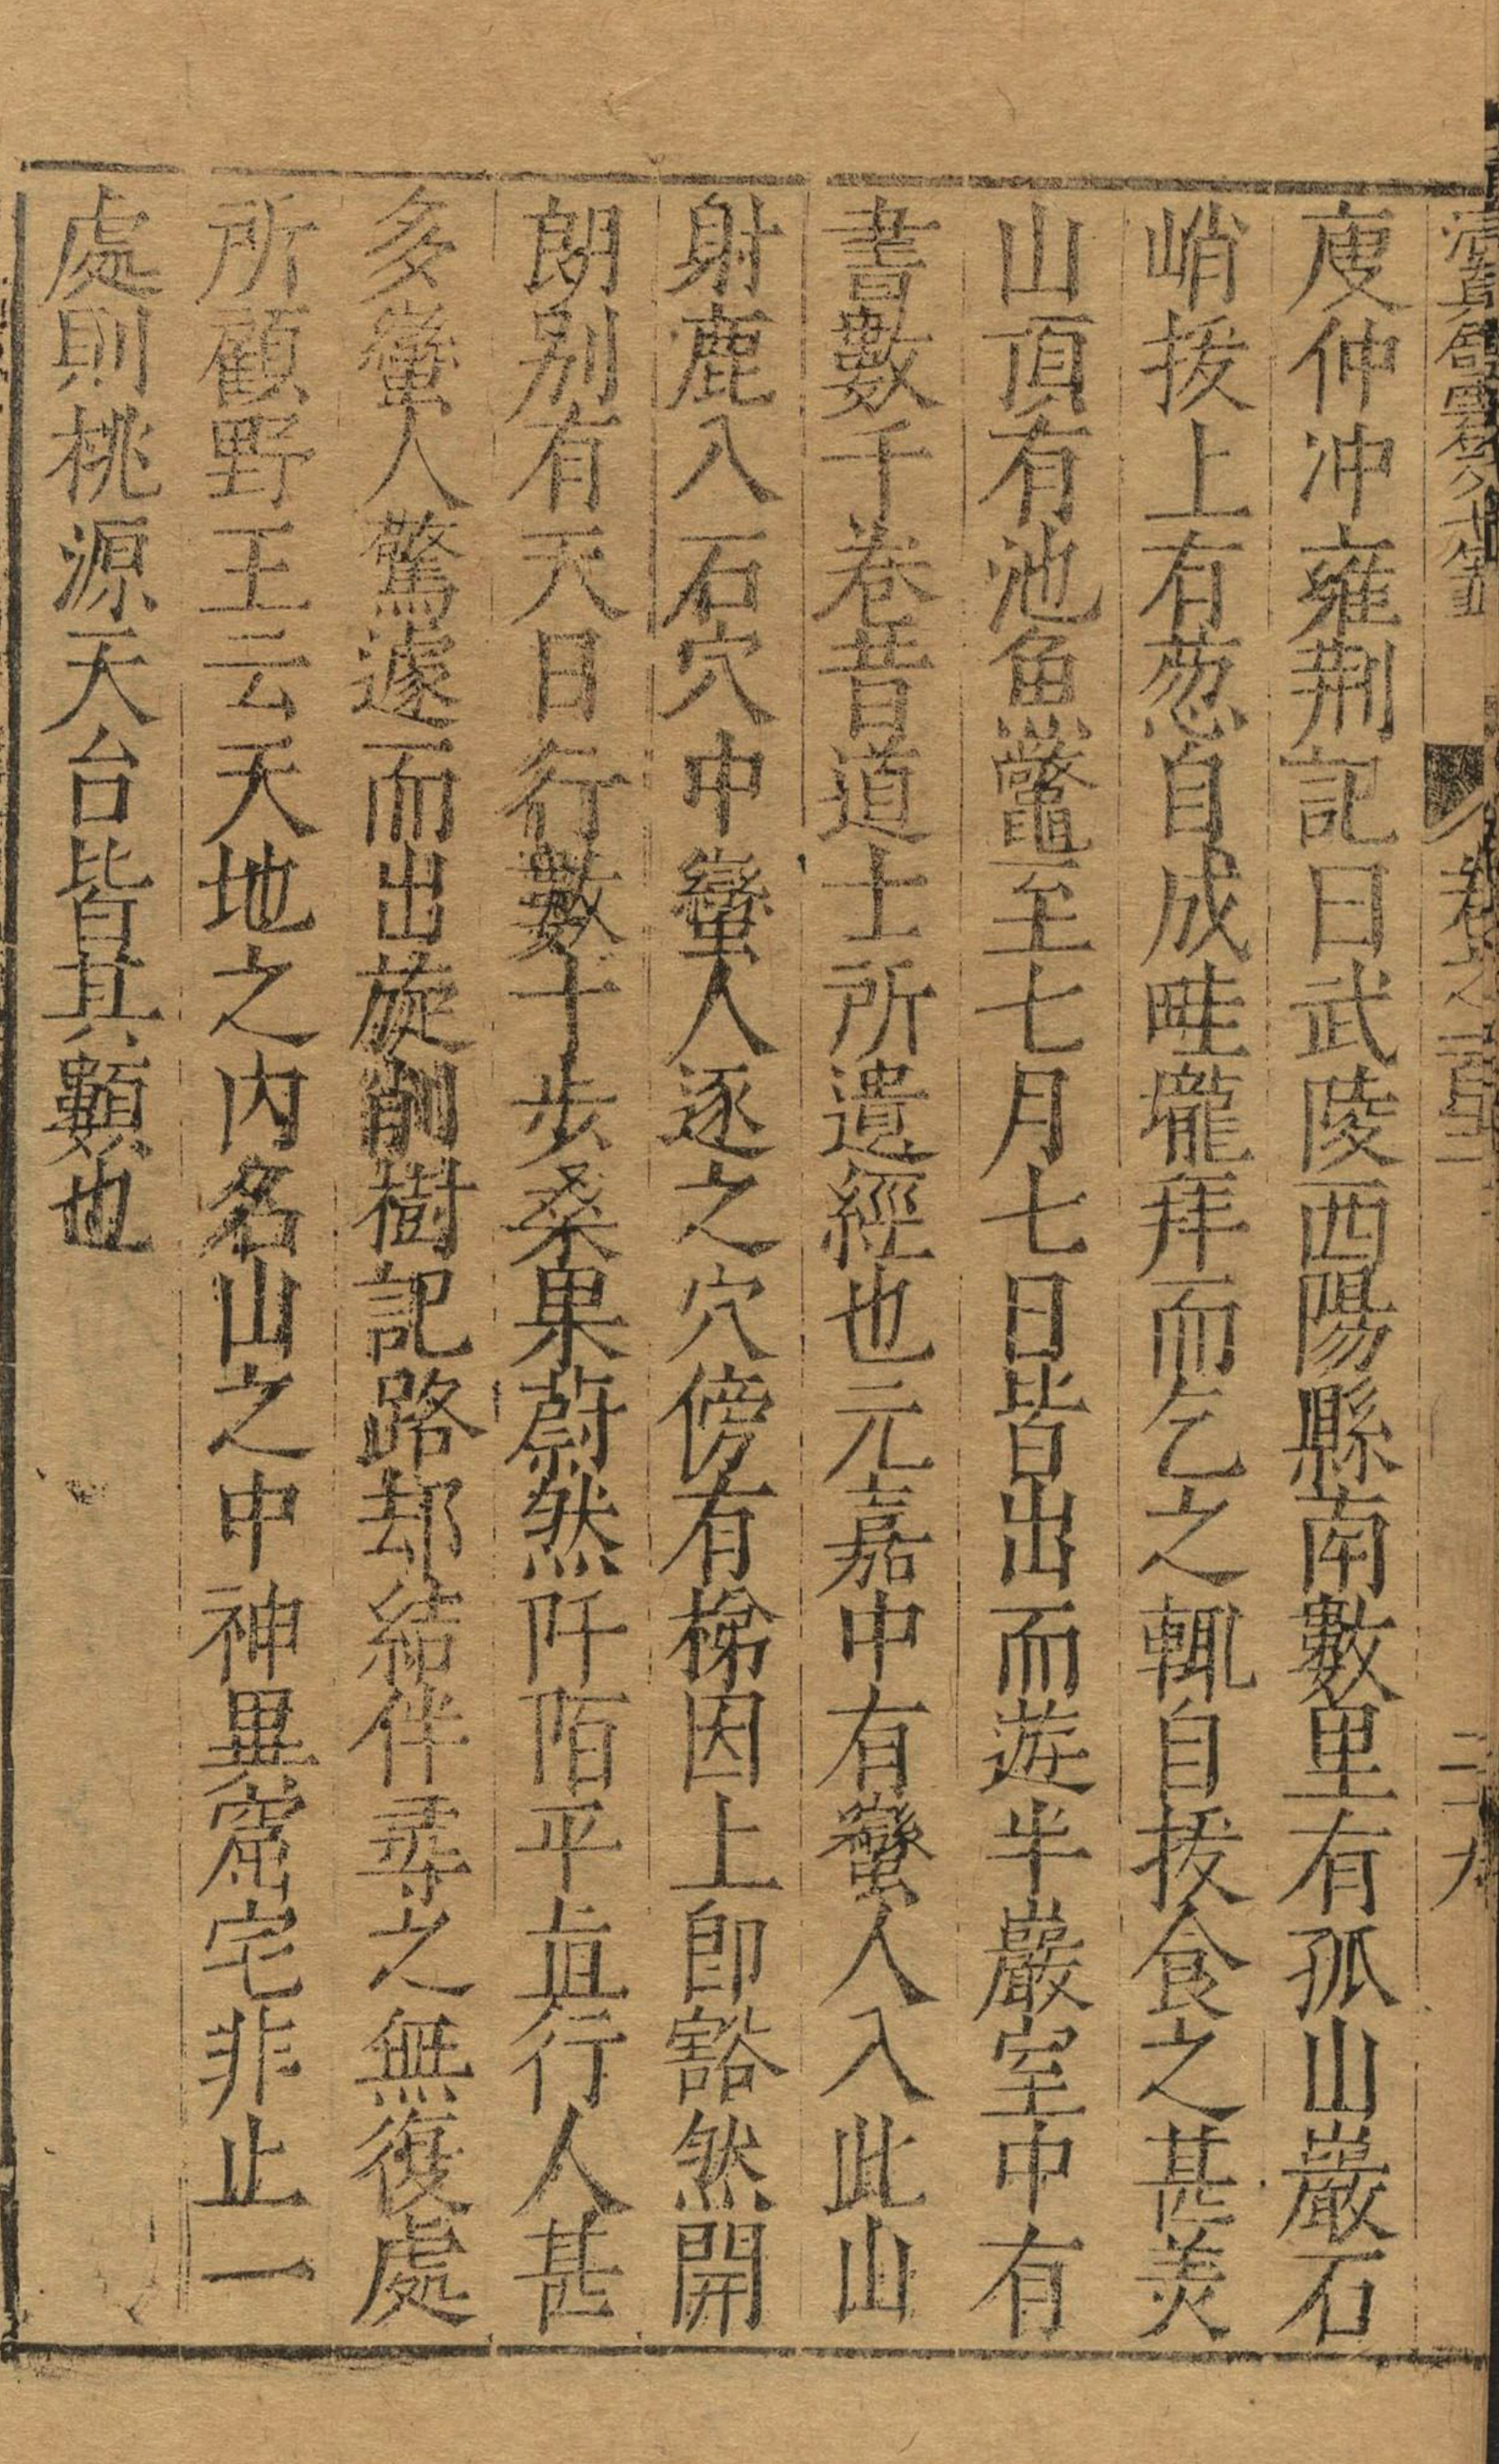 庾仲冲雍荆記曰武陵西陽縣南數里有孤山巖石
峭拔上有葱自成畦壠拜而乞之輒自拔食之甚美
山頂有池魚鱉至七月七日皆出而遊半巖室中有
書數千卷昔道士所遺經也元嘉中有蠻人入此山
射鹿入石穴中蠻人逐之穴傍有梯因上卽豁然開
朗别有天日行數十步桑果蔚然阡陌平直行人甚
多蠻人驚遽而出旋削樹記路却結伴尋之無復處
所顧野王云天地之内名山之中神異窟宅非止一
處則桃源天台皆其類也